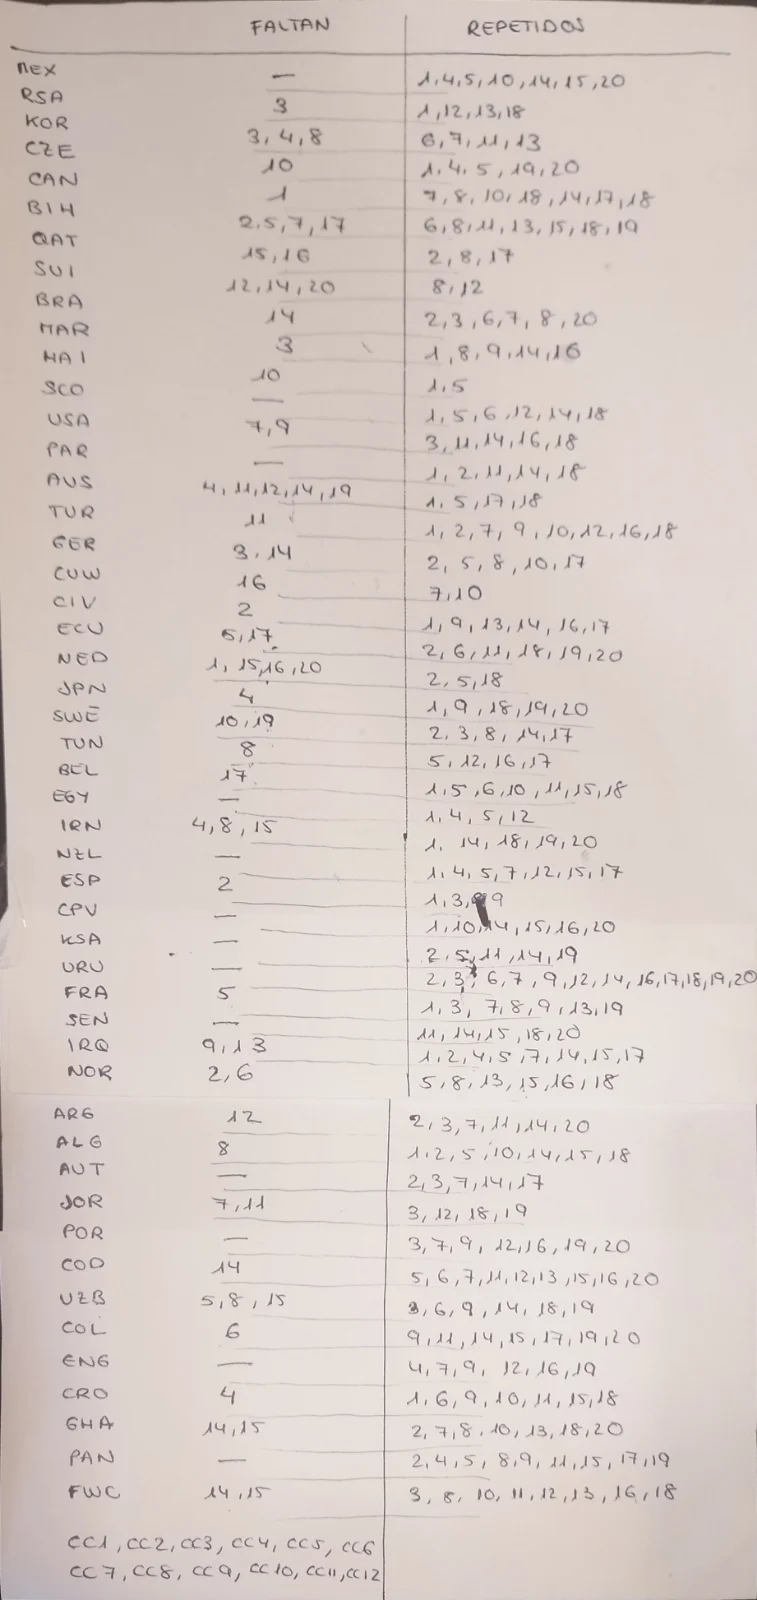 FALTAN REPETIDOS
MEX — 1,4,5,10,14,15,20
RSA 3 1,12,13,18
KOR 3,4,8 6,7,11,13
CZE 10 1,4,5,19,20
CAN 1 7,8,10,18,14,17,18
BIH 2,5,7,17 6,8,11,13,15,18,19
QAT 15,16 2,8,17
SUI 12,14,20 8,12
BRA 14 2,3,6,7,8,20
MAR 3 1,8,9,14,16
HAI 10 1,5
SCO — 1,5,6,12,14,18
USA 7,9 3,11,14,16,18
PAR — 1,2,11,14,18
AUS 4,11,12,14,19 1,5,17,18
TUR 11 1,2,7,9,10,12,16,18
GER 3,14 2,5,8,10,17
CUW 16 7,10
CIV 2 1,9,13,14,16,17
ECU 5,17 2,6,11,18,19,20
NED 1,15,16,20 2,5,18
JPN 4 1,9,18,19,20
SWE 10,19 2,3,8,14,17
TUN 8 5,12,16,17
BEL 17 1,5,6,10,11,15,18
EGY — 1,4,5,12
IRN 4,8,15 1,14,18,19,20
NZL — 1,4,5,7,12,15,17
ESP 2 1,3,9
CPV — 1,10,14,15,16,20
KSA — 2,5,11,14,19
URU — 2,3,6,7,9,12,14,16,17,18,19,20
FRA 5 1,3,7,8,9,13,19
SEN — 11,14,15,18,20
IRQ 9,13 1,2,4,5,7,14,15,17
NOR 2,6 5,8,13,15,16,18
ARG 12 2,3,7,11,14,20
ALG 8 1,2,5,10,14,15,18
AUT — 2,3,7,14,17
JOR 7,11 3,12,18,19
POR — 3,7,9,12,16,19,20
COD 14 5,6,7,11,12,13,15,16,20
UZB 5,8,15 3,6,9,14,18,19
COL 6 9,11,14,15,17,19,20
ENG — 4,7,9,12,16,19
CRO 4 1,6,9,10,11,15,18
GHA 14,15 2,7,8,10,13,18,20
PAN — 2,4,5,8,9,11,15,17,19
FWC 14,15 3,8,10,11,12,13,16,18
CC1, CC2, CC3, CC4, CC5, CC6
CC7, CC8, CC9, CC10, CC11, CC12